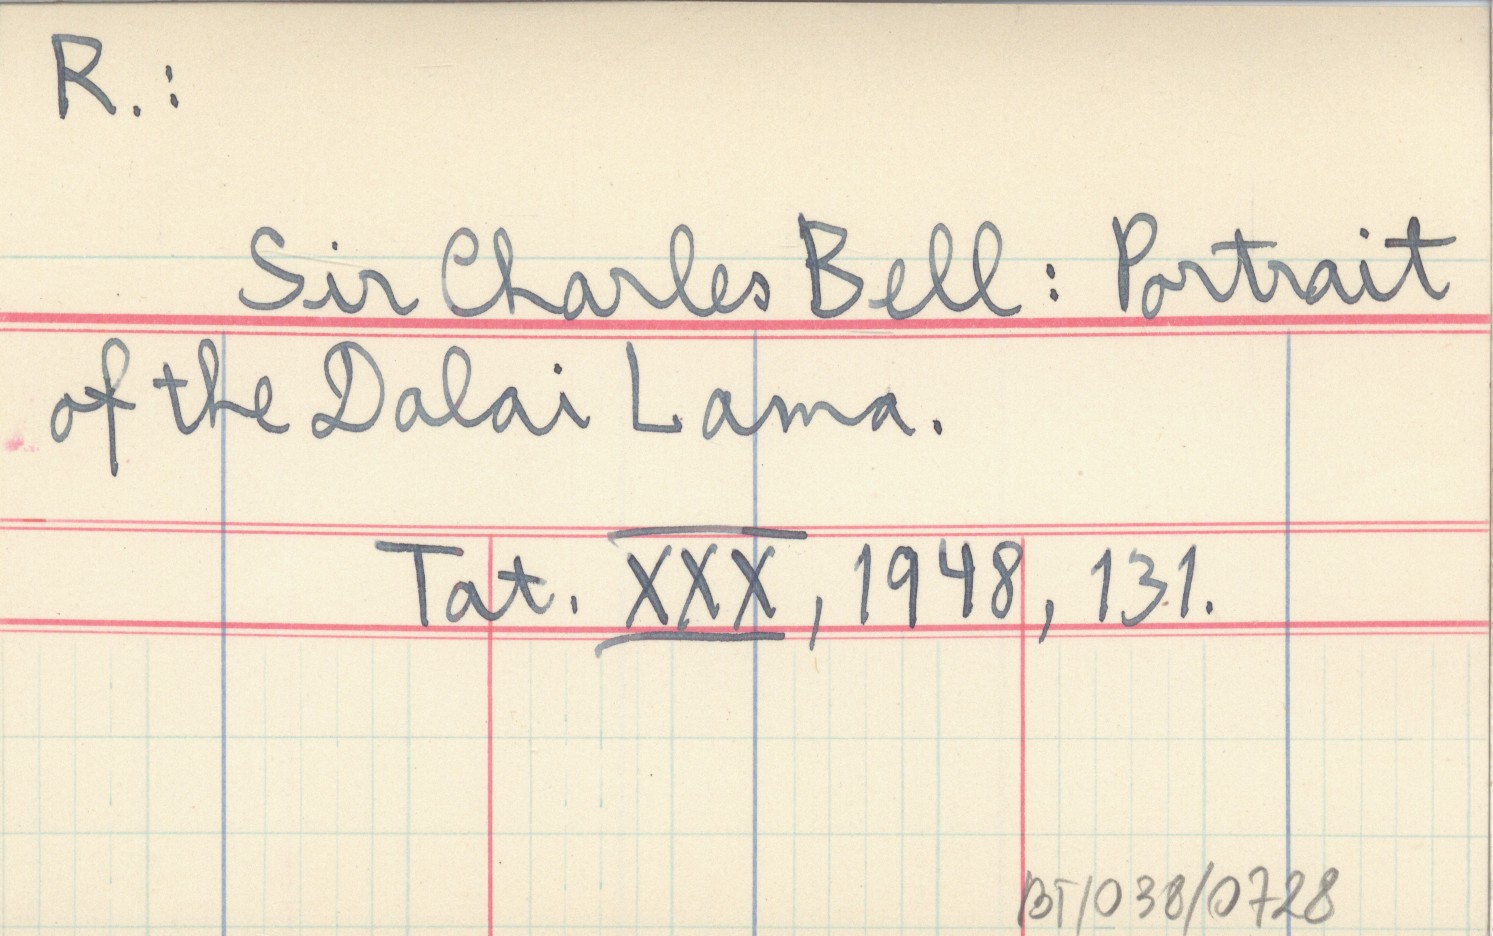 R.:
Sir Charles Bell: Portrait
of the Dalai Lama.
Tat. XXX, 1948, 131.
BT/038/0728